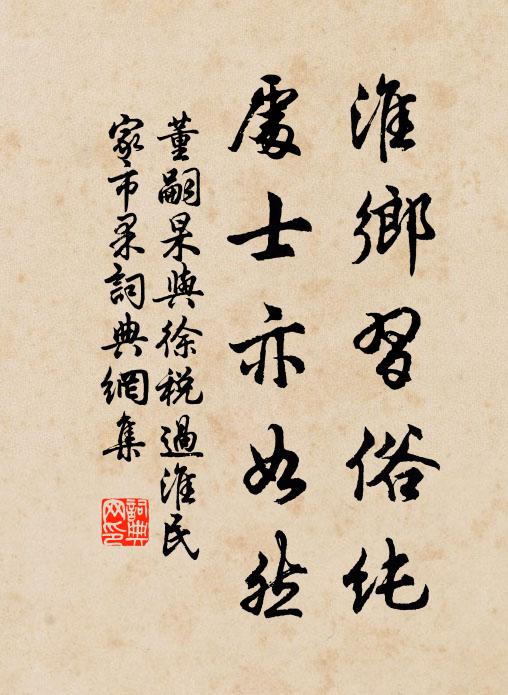 淮鄉習俗純
處士亦如然
董嗣杲與徐税過淮民
家市果詞典網集
詞典网印